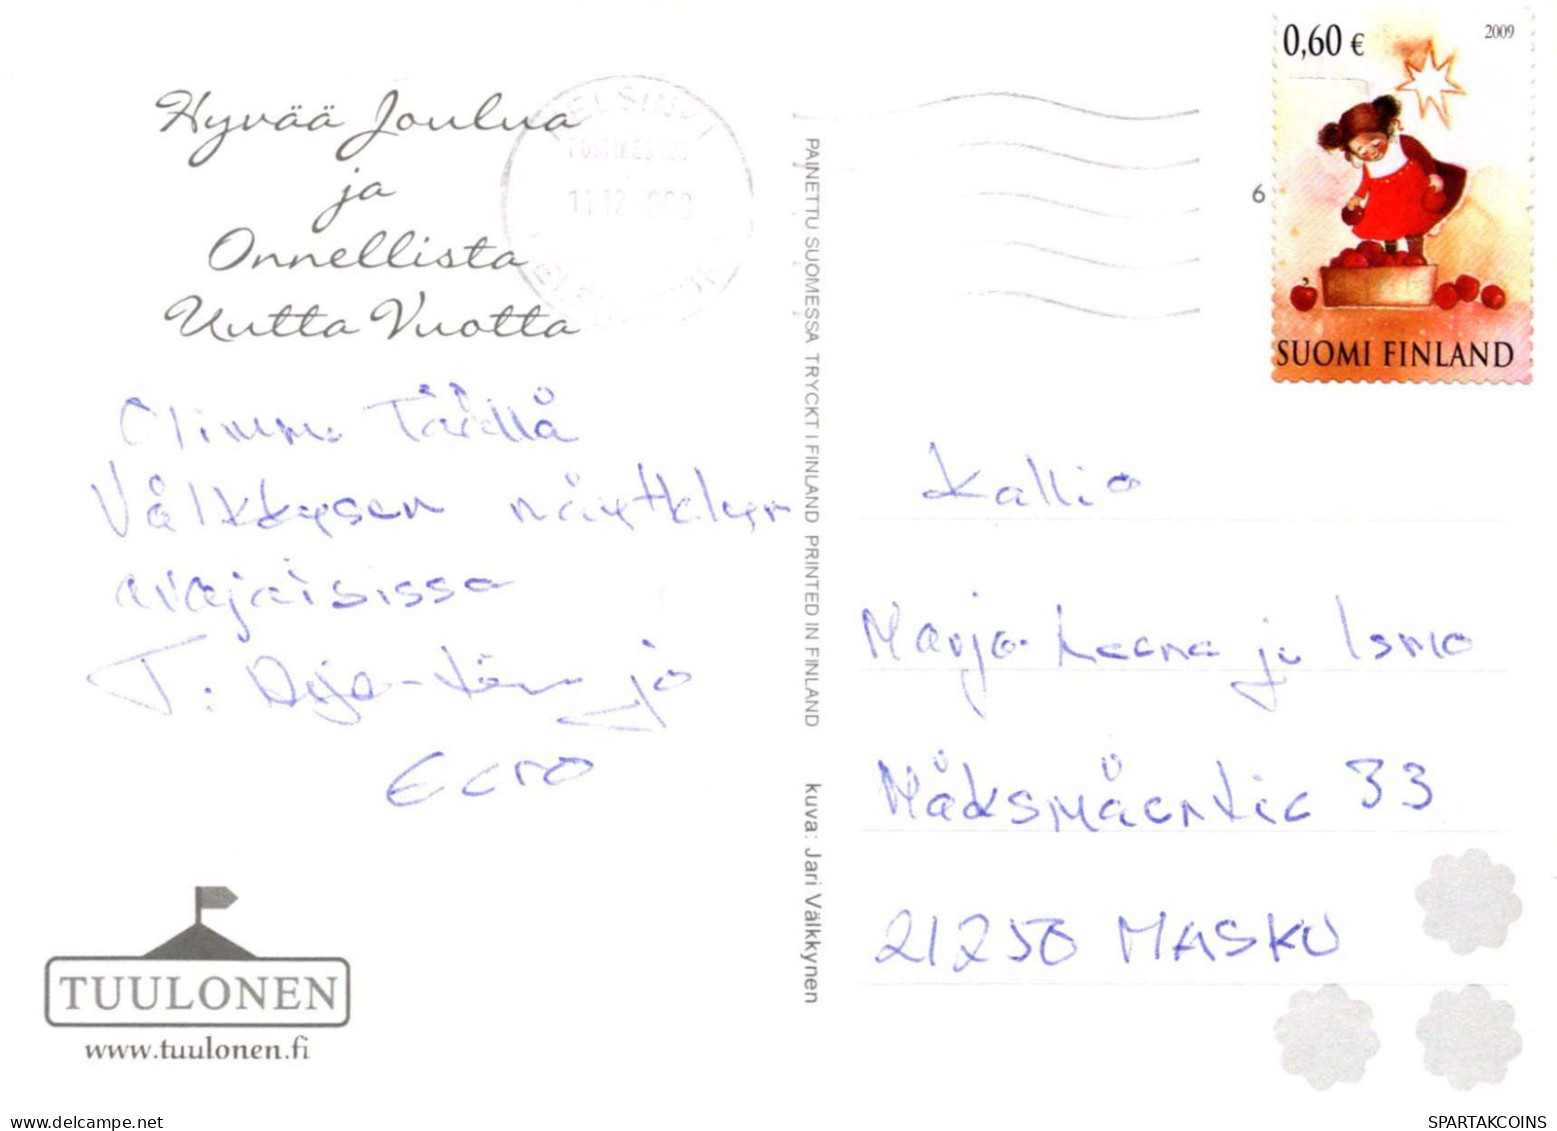 Hyvää Joulua
ja
Onnellista
Uutta Vuotta
Olimme Täällä
Välkkysen näyttelyn
avajaisissa
T: Ja
Eero
TUULONEN
www.tuulonen.fi
HELSINKI
11.12
PAINETTU SUOMESSA TRYCKT I FINLAND PRINTED IN FINLAND kuva: Jari Välkkynen
0,60 €
2009
6
SUOMI FINLAND
Kallio
Marja-Leena ja Ismo
Mäksmäentie 33
21250 MASKU
SPARTAKCOINS.COM